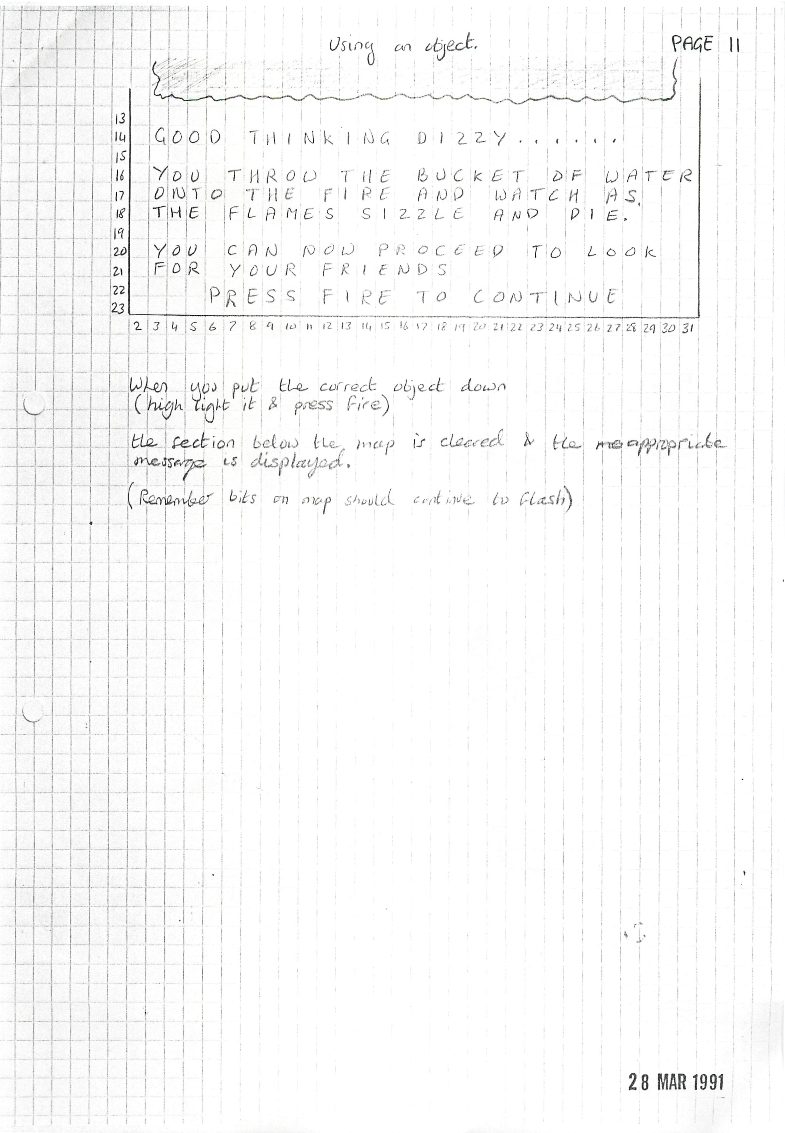 Using an object.
PAGE 11
13
14 GOOD THINKING DIZZY......
15
16 YOU THROW THE BUCKET OF WATER
17 ONTO THE FIRE AND WATCH AS.
18 THE FLAMES SIZZLE AND DIE.
19
20 YOU CAN NOW PROCEED TO LOOK
21 FOR YOUR FRIENDS
22 PRESS FIRE TO CONTINUE
23
2 3 4 5 6 7 8 9 10 11 12 13 14 15 16 17 18 19 20 21 22 23 24 25 26 27 28 29 30 31
When you put the correct object down
(high light it & press fire)
the section below the map is cleared & the appropriate
message is displayed.
(Remember bits on map should continue to flash)
28 MAR 1991